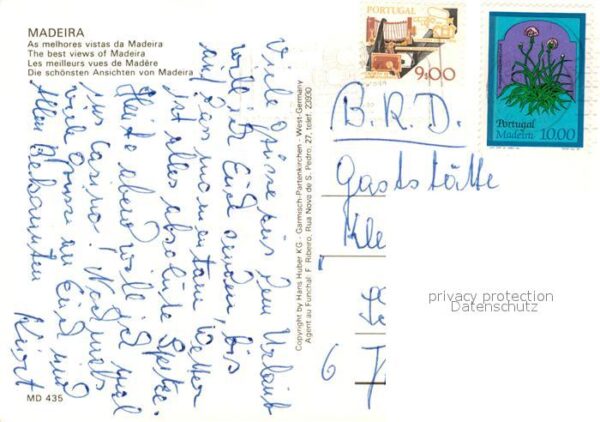 MADEIRA
As melhores vistas da Madeira
The best views of Madeira
Les meilleurs vues de Madère
Die schönsten Ansichten von Madeira
Viele Grüsse aus dem Urlaub
will ich Euch senden, bis
auf das momentane Wetter
ist alles absolute Spitze.
Heute abend will ich mal
ins Casino! Nochmals
viele Grüsse an Euch und
allen Bekannten
Kurt
MD 435
Copyright by Hans Huber KG - Garmisch-Partenkirchen - West-Germany
Agent au Funchal F. Ribeiro, Rua Nova de S. Pedro, 27, telef. 23930
PORTUGAL
9$00
Portugal
Madeira 10.00
B.R.D.
Gaststätte
Kle
6
privacy protection
Datenschutz